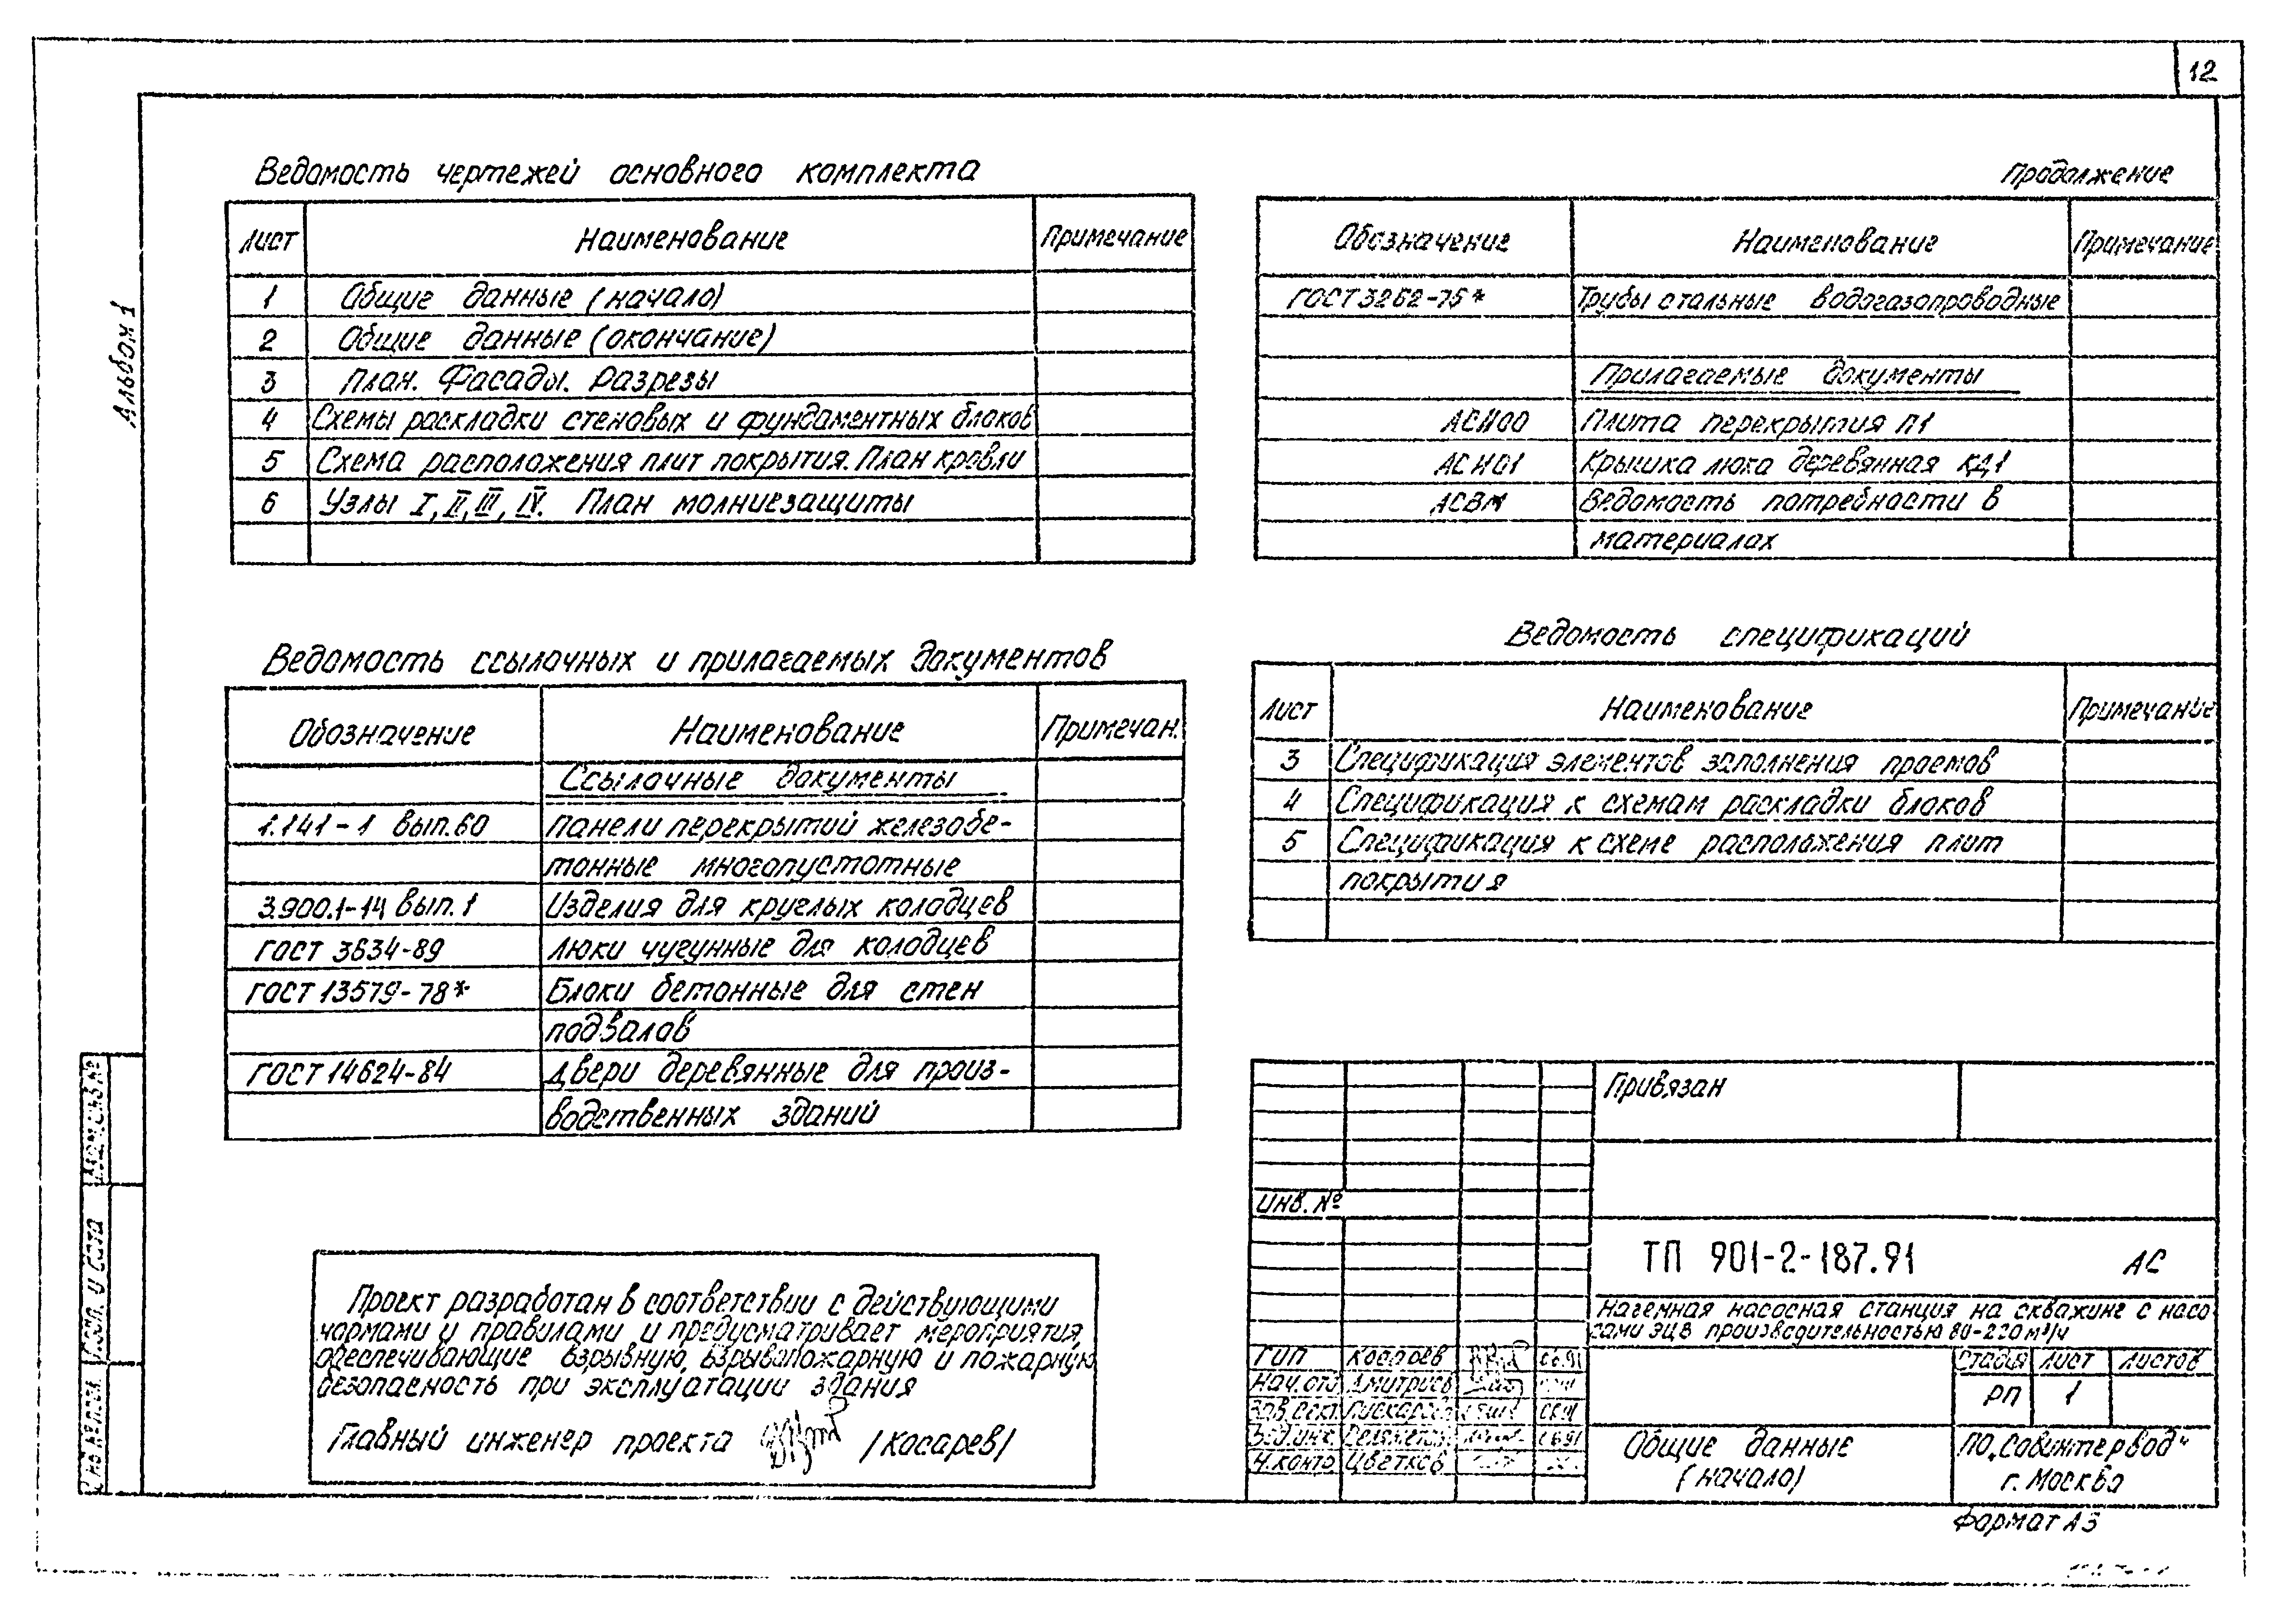 12
Альбом 1
Ведомость чертежей основного комплекта
Лист Наименование Примечание
1 Общие данные (начало)
2 Общие данные (окончание)
3 План. Фасады. Разрезы
4 Схемы раскладки стеновых и фундаментных блоков
5 Схема расположения плит покрытия. План кровли
6 Узлы I, II, III, IV. План молниезащиты
Ведомость ссылочных и прилагаемых документов
Обозначение Наименование Примечан.
Ссылочные документы
1.141-1 вып.60 Панели перекрытий железобе-
тонные многопустотные
3.900.1-14 вып.1 Изделия для круглых колодцев
ГОСТ 3634-89 Люки чугунные для колодцев
ГОСТ 13579-78* Блоки бетонные для стен
подвалов
ГОСТ 14624-84 Двери деревянные для произ-
водственных зданий
Проект разработан в соответствии с действующими
нормами и правилами и предусматривает мероприятия,
обеспечивающие взрывную, взрывопожарную и пожарную
безопасность при эксплуатации здания
Главный инженер проекта /Косарев/
Продолжение
Обозначение Наименование Примечание
ГОСТ 3262-75* Трубы стальные водогазопроводные
Прилагаемые документы
АСИ00 Плита перекрытия П1
АСИ01 Крышка люка деревянная КД1
АСВМ Ведомость потребности в
материалах
Ведомость спецификаций
Лист Наименование Примечание
3 Спецификация элементов заполнения проемов
4 Спецификация к схемам раскладки блоков
5 Спецификация к схеме расположения плит
покрытия
Привязан
Инв. №
ТП 901-2-187.91 АС
Наземная насосная станция на скважине с насо
сами ЭЦВ производительностью 80-220 м³/ч
ГИП Косарев 06.91
Нач. отд Дмитриев
Зав. сект
Вед. инж. 06.91
Н. контр Цветков
Стадия Лист Листов
РП 1
Общие данные
(начало)
ПО „Совинтервод"
г. Москва
Формат А3
Взам. инв. №
Подп. и дата
Инв. № подл.